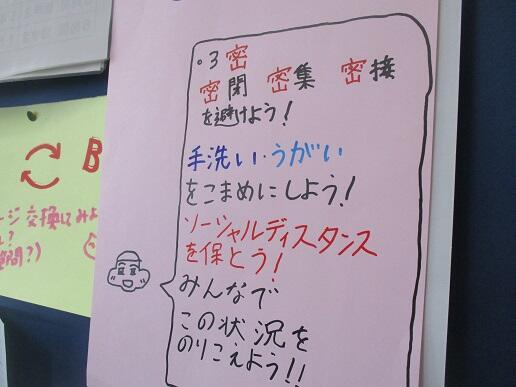 ・3密
密閉 密集 密接
を避けよう!
手洗い・うがい
をこまめにしよう!
ソーシャルディスタンス
を保とう!
みんなで
この状況を
のりこえよう!!
B
ージ交換してみよ
?
問?)